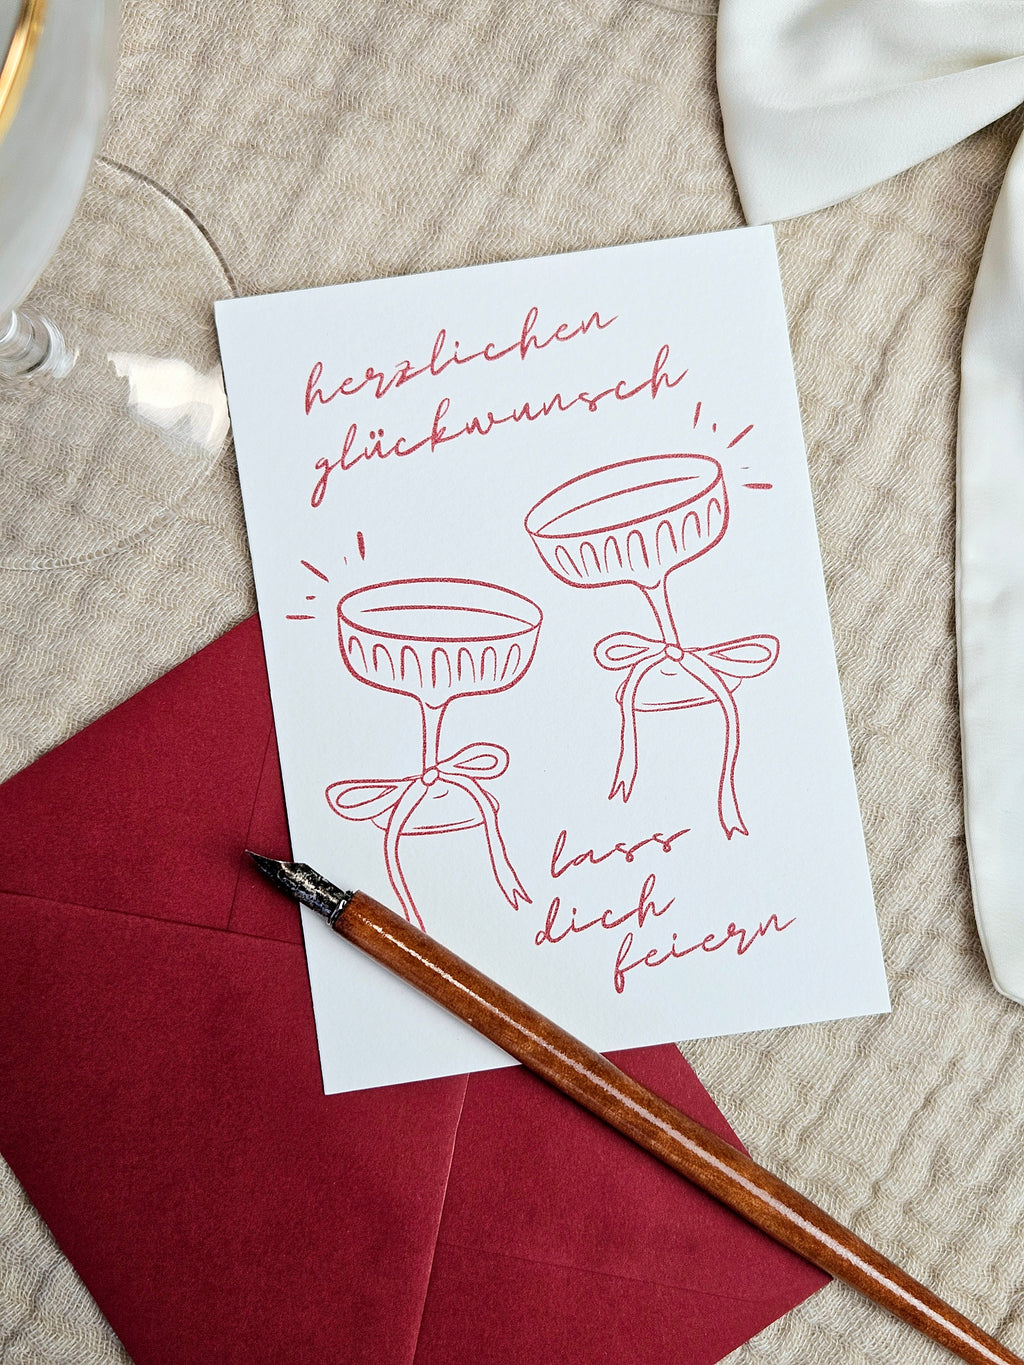 herzlichen
glückwunsch
lass
dich
feiern